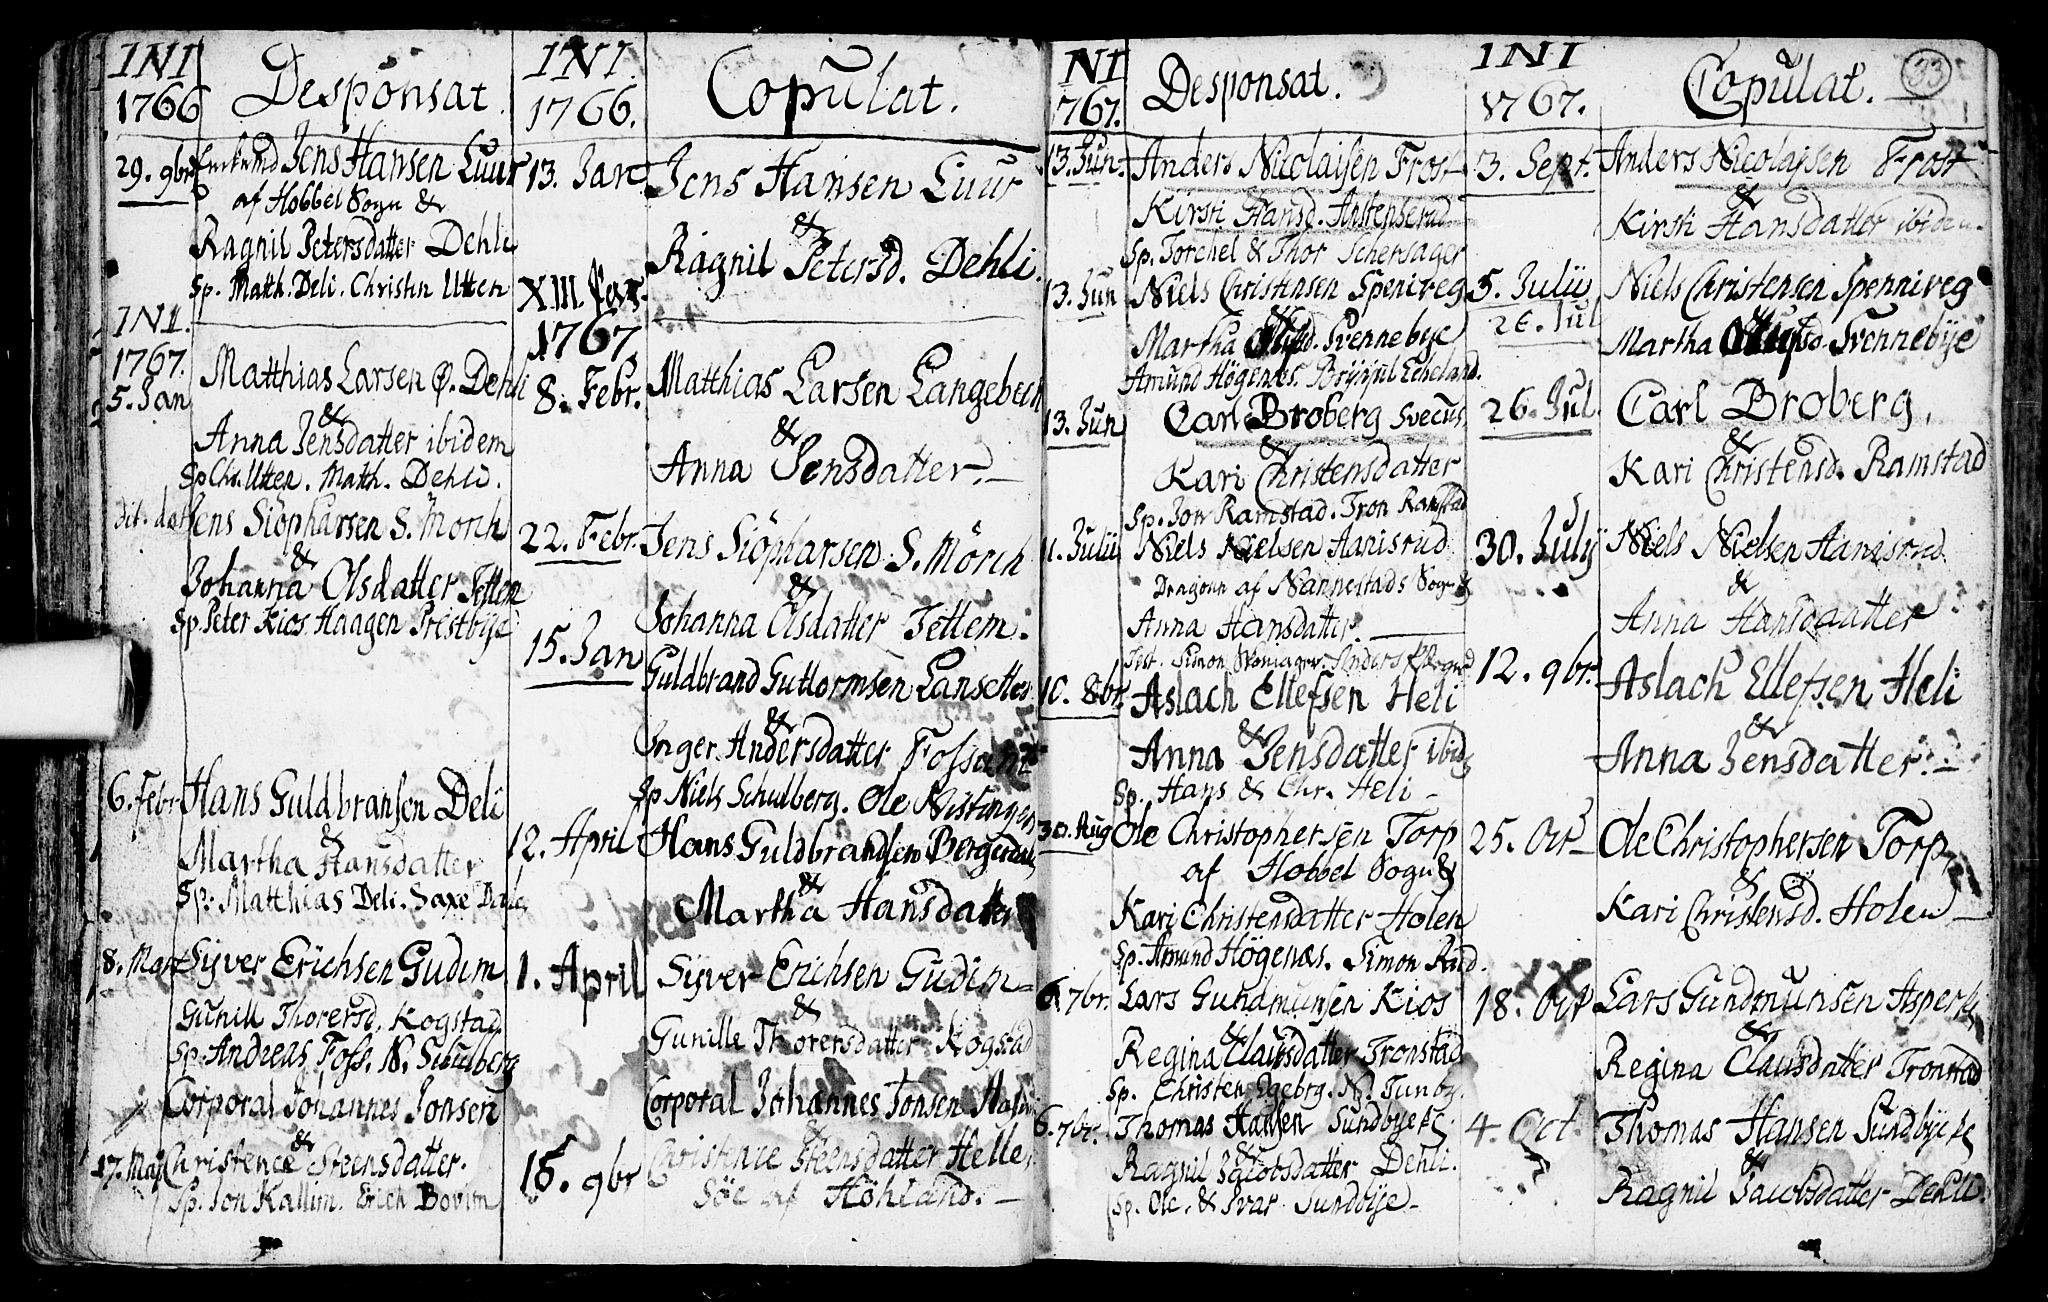 INI
1766
Desponsat.
29. 9br
Enkemd Jens Hansen Luur
af Hobbel Sogn &
Ragnil Petersdatter Dehli
Sp. Matth. Deli. Christen Utten
INI.
1767.
5. Jan
Matthias Larsen Ø. Dehli
&
Anna Jensdatter ibidem
Sp Chr. Utten. Matth. Dehli.
dit. dat
Jens Siöpharsen S. Mörch
&
Johanna Olsdatter Tetten
Sp. Peter Kios. Haagen Prestbye
6. Febr
Hans Guldbransen Deli
&
Martha Hansdatter
Sp. Matthias Deli. Saxe
8. Mart
Syver Erichsen Gudim
Gunill Thorersd. Kogstad
Sp. Andreas Foss. N. Schulberg
Corporal Johannes Jonsen
&
17. Maj
Christence Steensdatter.
Sp. Jon Kallim. Erich Bovim
INI.
1766.
Copulat.
13. Jan.
Jens Hansen Luur
&
Ragnil Petersd. Dehli.
XIII. Jan.
1767
8. Febr.
Matthias Larsen Langebech
&
Anna Jensdatter.
22. Febr.
Jens Siöpharsen S. Mörch
&
Johanna Olsdatter Tettem.
15. Jan
Guldbrand Guttormsen Lansettes
&
Inger Andersdatter
Sp Niels Schulberg. Ole
12. April
Hans Guldbrandsen
&
Martha Hansdatter
1. April
Syver Erichsen Gudim
&
Gunille Thorersdatter Kogstad
Corporal Johannes Jonsen
&
15. 9br
Christence Steensdatter Helle,
Söe af Höhland.
NI
767.
Desponsat.
13. Jun.
Anders Nicolajsen Frost
Kirsti Hansd.
Sp. Torchel & Thor Schersager
13. Jun
Niels Christensen Spenireg
&
Martha Olufsd. Svennebye
Amund Högenæs. Brynjul Echeland.
13. Jun
Carl Broberg Svecus
&
Kari Christensdatter
Sp. Jon Ramstad. Tron Ramstad
11. Julii
Niels Nielsen Hanisrud
Dragoun af Nannestads Sogn &
Anna Hansdatter.
Test. Simon
10. 8br.
Aslach Ellefsen Heli
&
Anna Jensdatter ibid
Sp. Hans & Chr. Heli
30. Aug
Ole Christophersen Torp
af Hobbel Sogn &
Kari Christensdatter Holen
Sp. Amund Högenæs. Simon Rud.
6. 7br.
Lars Gundmunsen Kios
&
Regina Clausdatter Tronstad
Sp. Christen Egebrg. N. Tunby.
6. 7br.
Thomas Hansen Sundbyese
&
Ragnil Jacobsdatter Dehli.
Sp. Ole. & Ivar Sundbye
INI
1767.
Copulat.
33
3. Sept.
Anders Nicolajsen Frost
&
Kirsti Hansdatter ibidem.
5. Julii
Niels Christensen Spennireg
26. Jul
&
Martha Olufsd. Svennebye
26. Jul.
Carl Broberg.
&
Kari Christensd. Ramstad
30. July
Niels Nielsen Hanisrud.
&
Anna Hansdaatter
12. 9br.
Aslach Ellefsen Heli
&
Anna Jensdatter.
25. Oct
Ole Christophersen Torp
&
Kari Christensd. Holen
18. Oct
Lars Gundmunsen
&
Regina Clausdatter Tronstad
4. Oct.
Thomas Hansen Sundbyese
&
Ragnil Jacobsdatter Dehli.